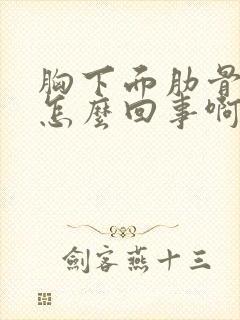 胸下而肋骨
怎麼回事啊
劍客燕十三